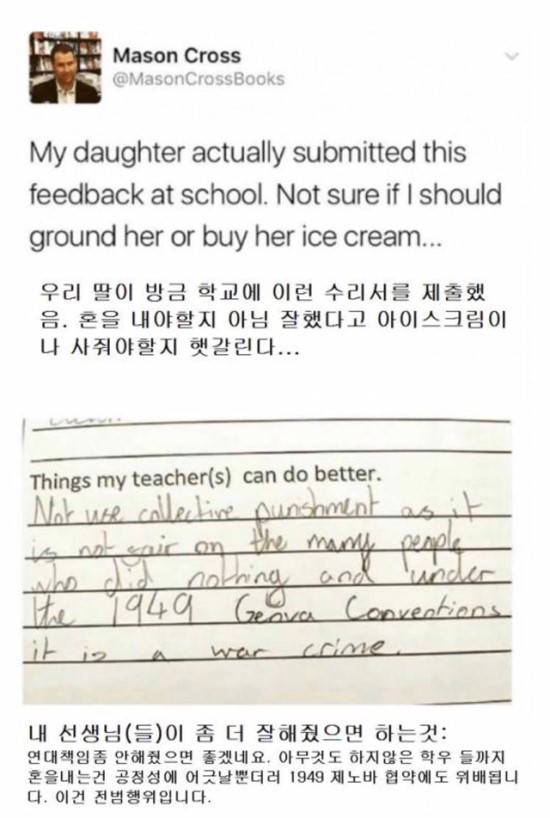 Mason Cross
@MasonCrossBooks
My daughter actually submitted this
feedback at school. Not sure if I should
ground her or buy her ice cream...
우리 딸이 방금 학교에 이런 수리서를 제출했
음. 혼을 내야할지 아님 잘했다고 아이스크림이
나 사줘야할지 햇갈린다...
Things my teacher(s) can do better.
Not use collective punishment as it
is not fair on the many people
who did nothing and under
the 1949 Genva Conventions
it is a war crime.
내 선생님(들)이 좀 더 잘해줬으면 하는것:
연대책임좀 안해줬으면 좋겠네요. 아무것도 하지않은 학우 들까지
혼을내는건 공정성에 어긋날뿐더러 1949 제노바 협약에도 위배됩니
다. 이건 전범행위입니다.